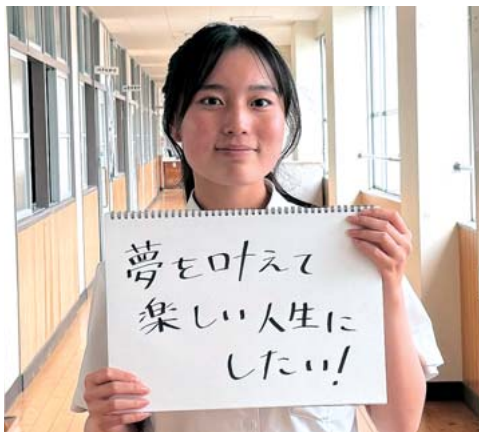 夢を叶えて
楽しい人生に
したい!